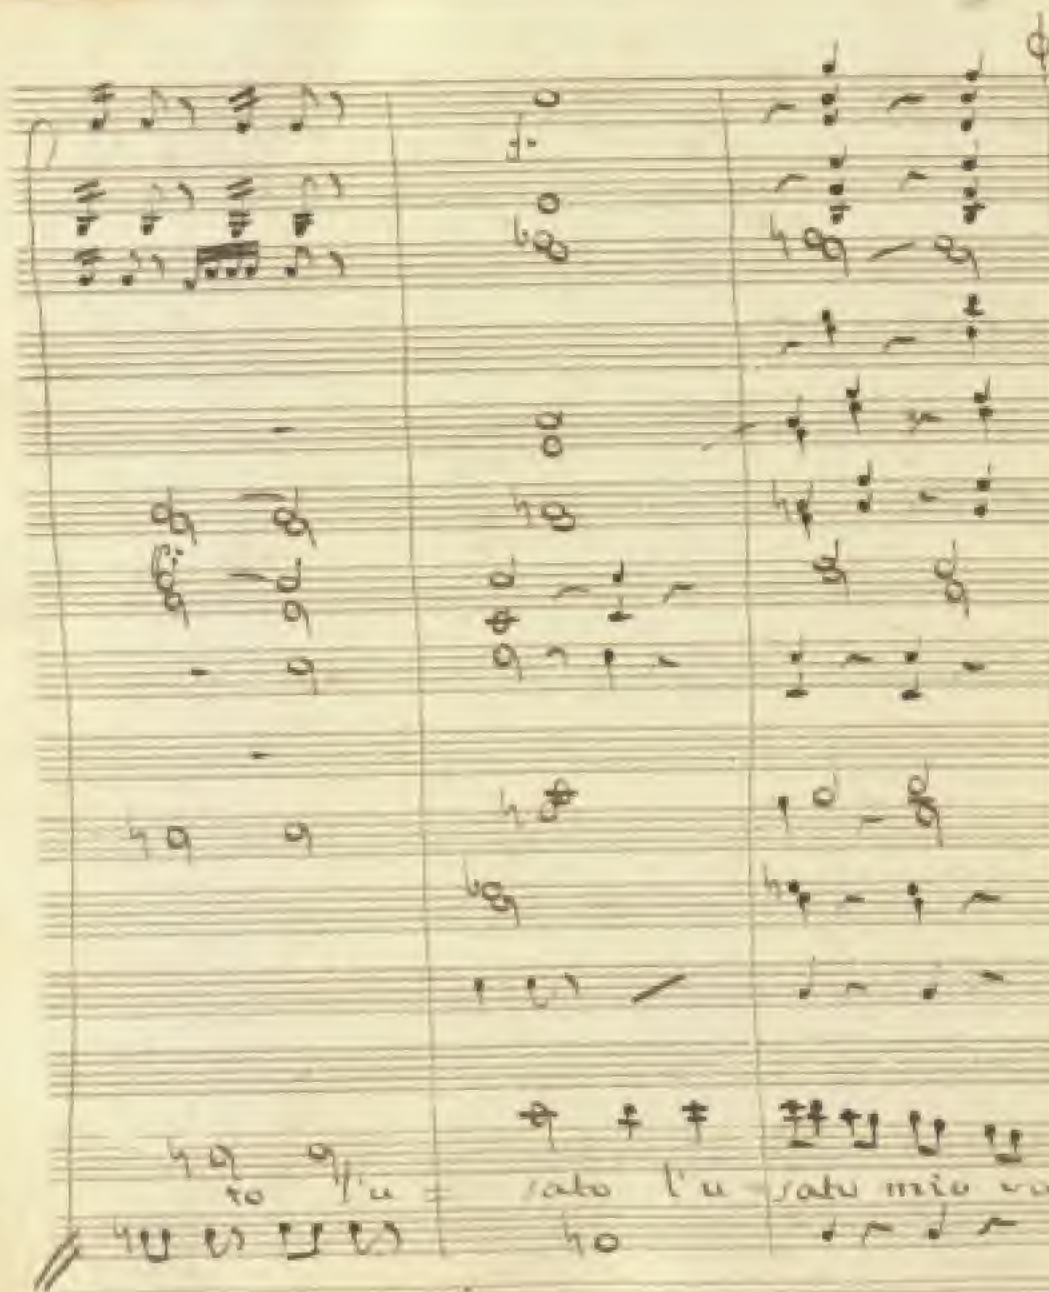 ro l'u = sato l'u - sato mio